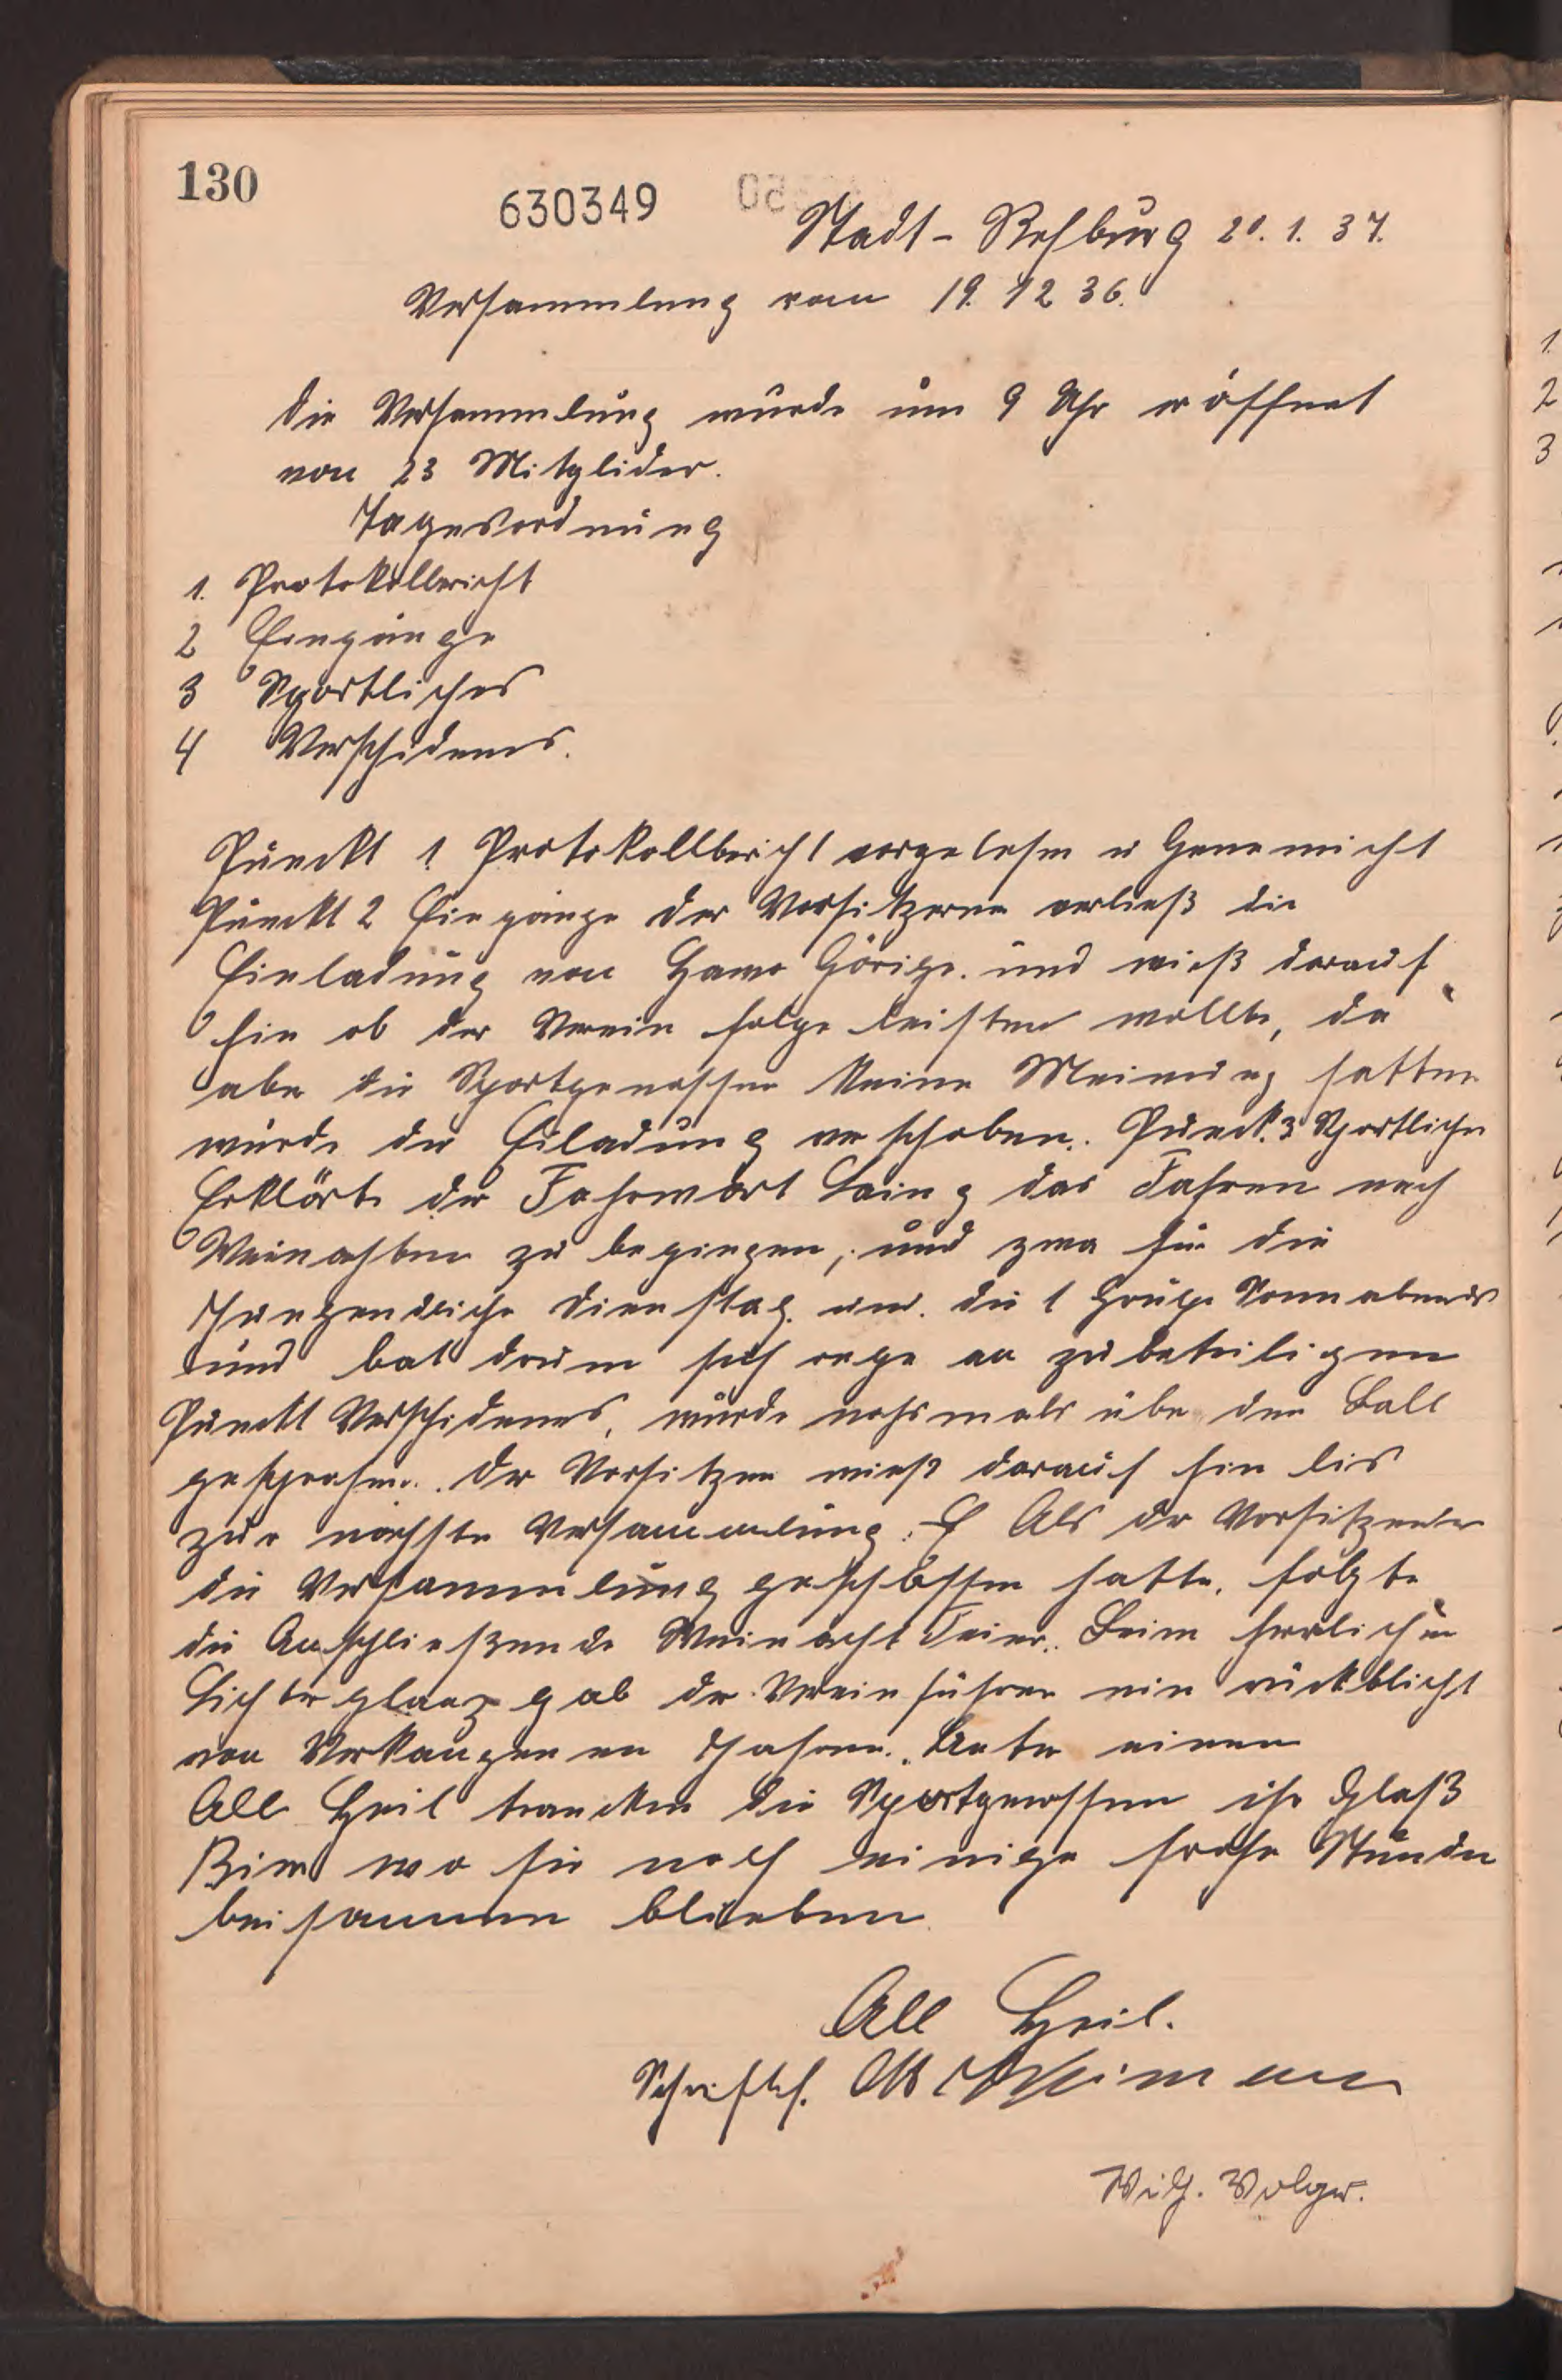 130
630349
Stadt-Rehburg 20.1.37.
Versammlung vom 19.12 36.
die Versammlung wurde um 9 Uhr eröffnet
von 23 Mitglider.
Tagesordnung
1. Protokollbericht
2 Eingänge
3 Sportliches
4 Verschidenes.
Punckt 1 Protokollbericht vorgelesen u Genemicht
Punckt 2 Eingänge der Vorsitzenne verließ die
Einladung von und wieß darauf
hin ob der Verein folge leisten wollte, da
aber die Sportgenossen keine Meinung hatten
wurde die Eiladung verschoben. Punck. 3 Sportliches
Erklärte der Fahrwart das Fahren nach
Weinachten zu beginnen, und zwar für die
Jungendliche Dienstag. und. die 1 Grupe Sonnabends
und bat drum sich rege an zu beteiligen
Punckt Verschidenes, wurde nochmals über den Ball
gesprochen. der Vorsitzen wieß darauf hin bis
zur nächste Versammlung. Als der Vorsitzender
die Versammlung geschlossen hatte, folgte
die Anschließende Weinacht Feier. Beim herrlichen
Lichterglanz gab der Vereinführer ein rückblicht
von Verkangenen Jahren. Unter einen
All Heil trancken die Sportgenossen ihr Glaß
Bier wo sie noch einige frohe Stunden
beisammen blieben
All Heil.
Schriftf.
Wilh. Volger.